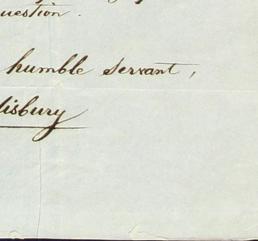 uestion.
humble servant,
lisbury